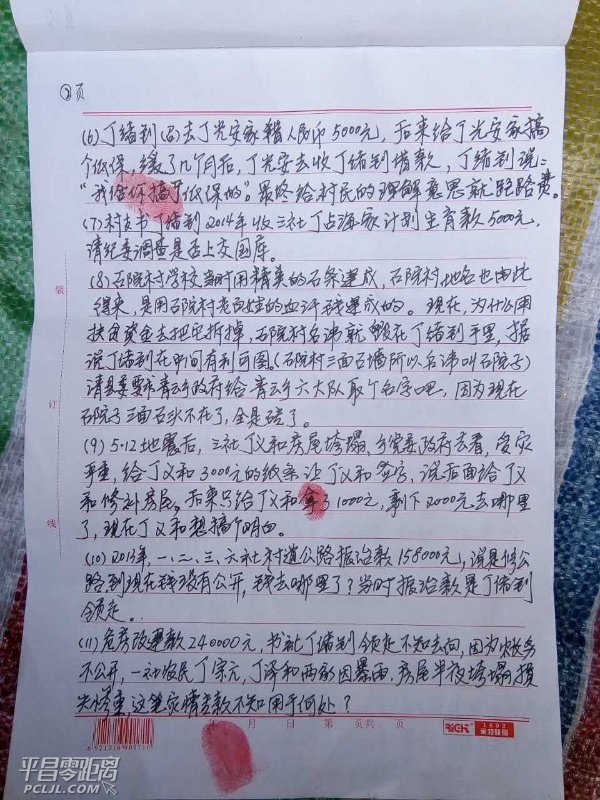 ②页
(6) 丁绪到(四)去丁光安家借人民币5000元，后来给丁光安家搞
个低保，缓了几个月后，丁光安去收丁绪到借款，丁绪到说：
“我给你搞了低保的”。最终给村民的理解意思就是跑路费。
(7) 村支书丁绪到2014年收三社丁占海家计划生育款5000元，
请纪委调查是否上交国库。
(8) 石院村学校当时用精美的石条建成，石院村地名也由此
得来，是用石院村老百姓的血汗钱建成的。现在，为什么用
扶贫资金去把它拆掉，石院村名讳就毁在丁绪到手里，据
说丁绪到在中间有利可图。(石院村三面石墙所以名讳叫石院子)
请县委要求青云乡政府给青云乡六大队取个名字吧，因为现在
石院子三面石头不在了，全是砖了。
(9) 5·12地震后，三社丁义和房屋垮塌，乡党委政府去看，受灾
严重，给丁义和3000元的纸条让丁义和签字，说后面给丁义
和修补房屋，后来只给丁义和拿了1000元，剩下2000元去哪里
了，现在丁义和想搞个明白。
(10) 2013年，一、二、三、六社村道公路振治款158000元，说是修公
路到现在钱没有公开，钱去哪里了？当时振治款是丁绪到
领走。
(11) 危房改建款240000元，书记丁绪到领走不知去向，因为账务
不公开，一社农民丁宗元、丁泽和两家因暴雨，房屋半夜垮塌损
失惨重，这笔灾情款不知用于何处？
装
订
线
年 月 日 第 页共 页
RiCH 1602
6921316900710
平昌零距离
PCLJL.COM